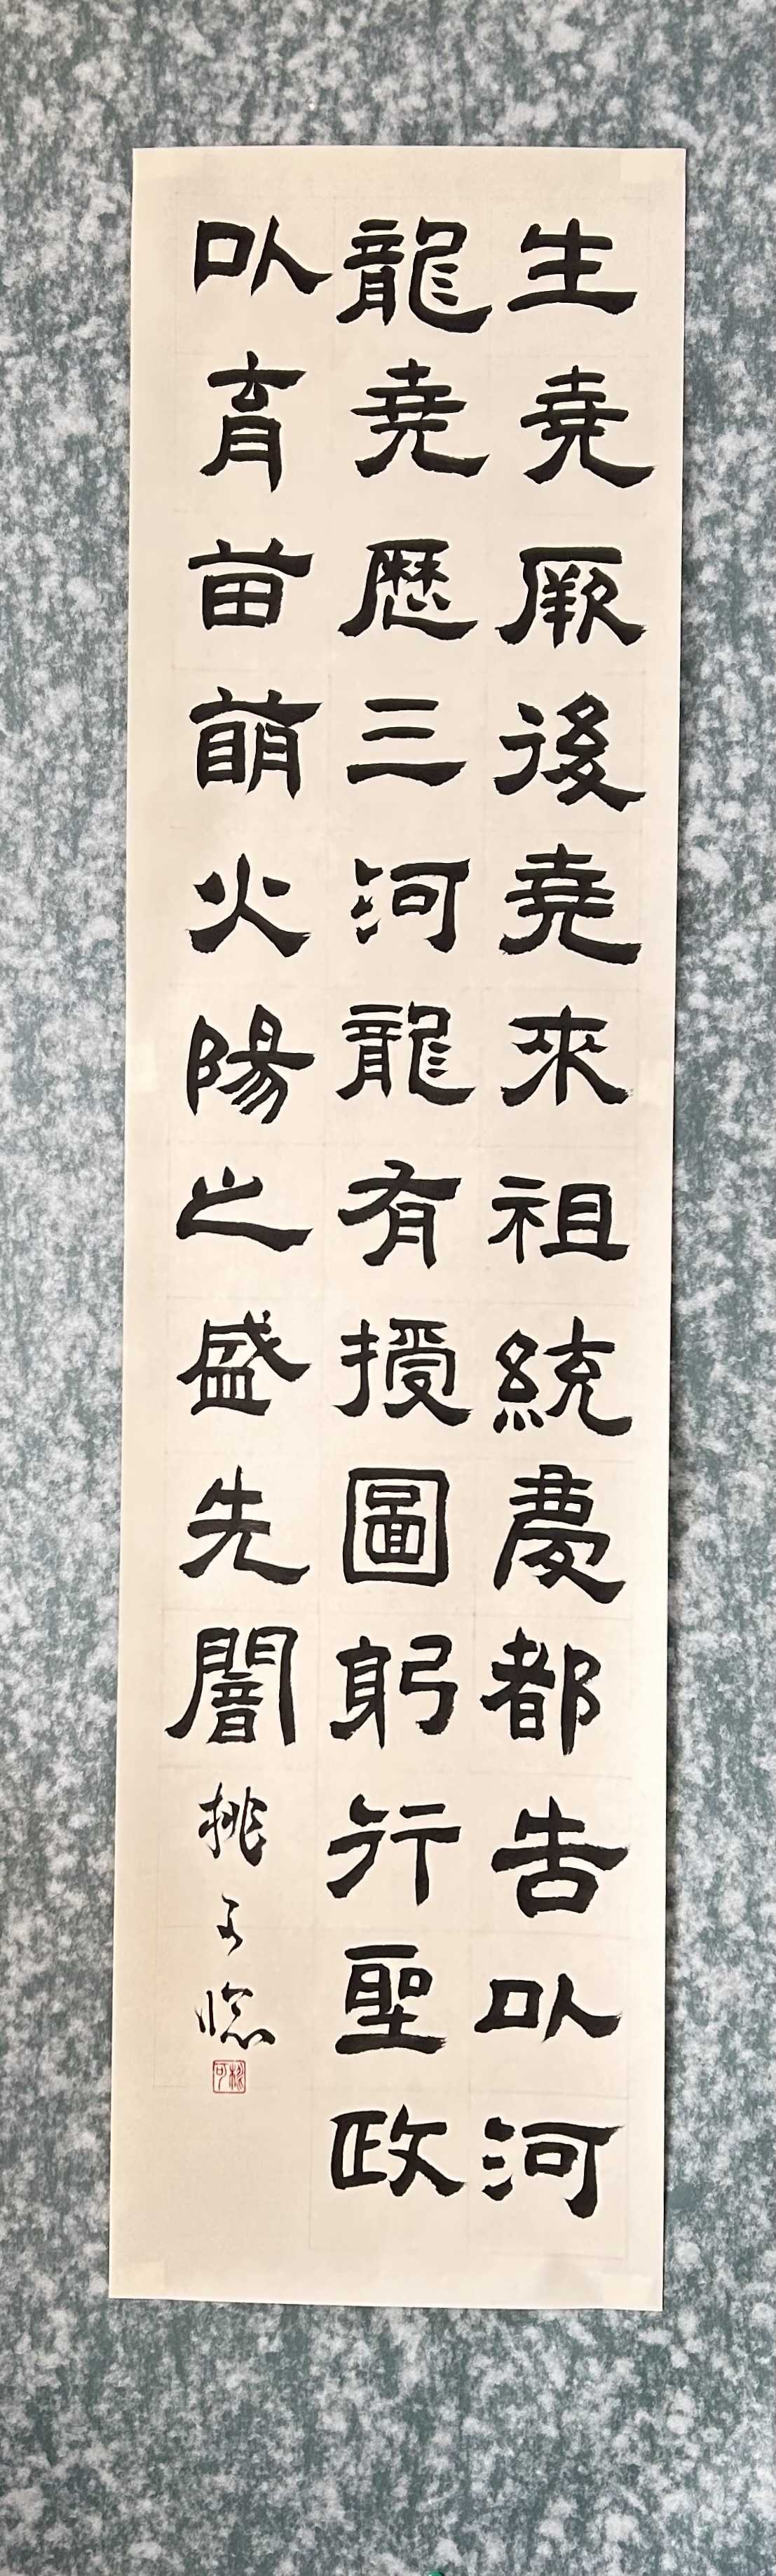 生堯厥後堯來祖統慶都告以河
龍堯歷三河龍有授圖躬行聖政
以育苗萌火陽之盛先闇
桃子臨